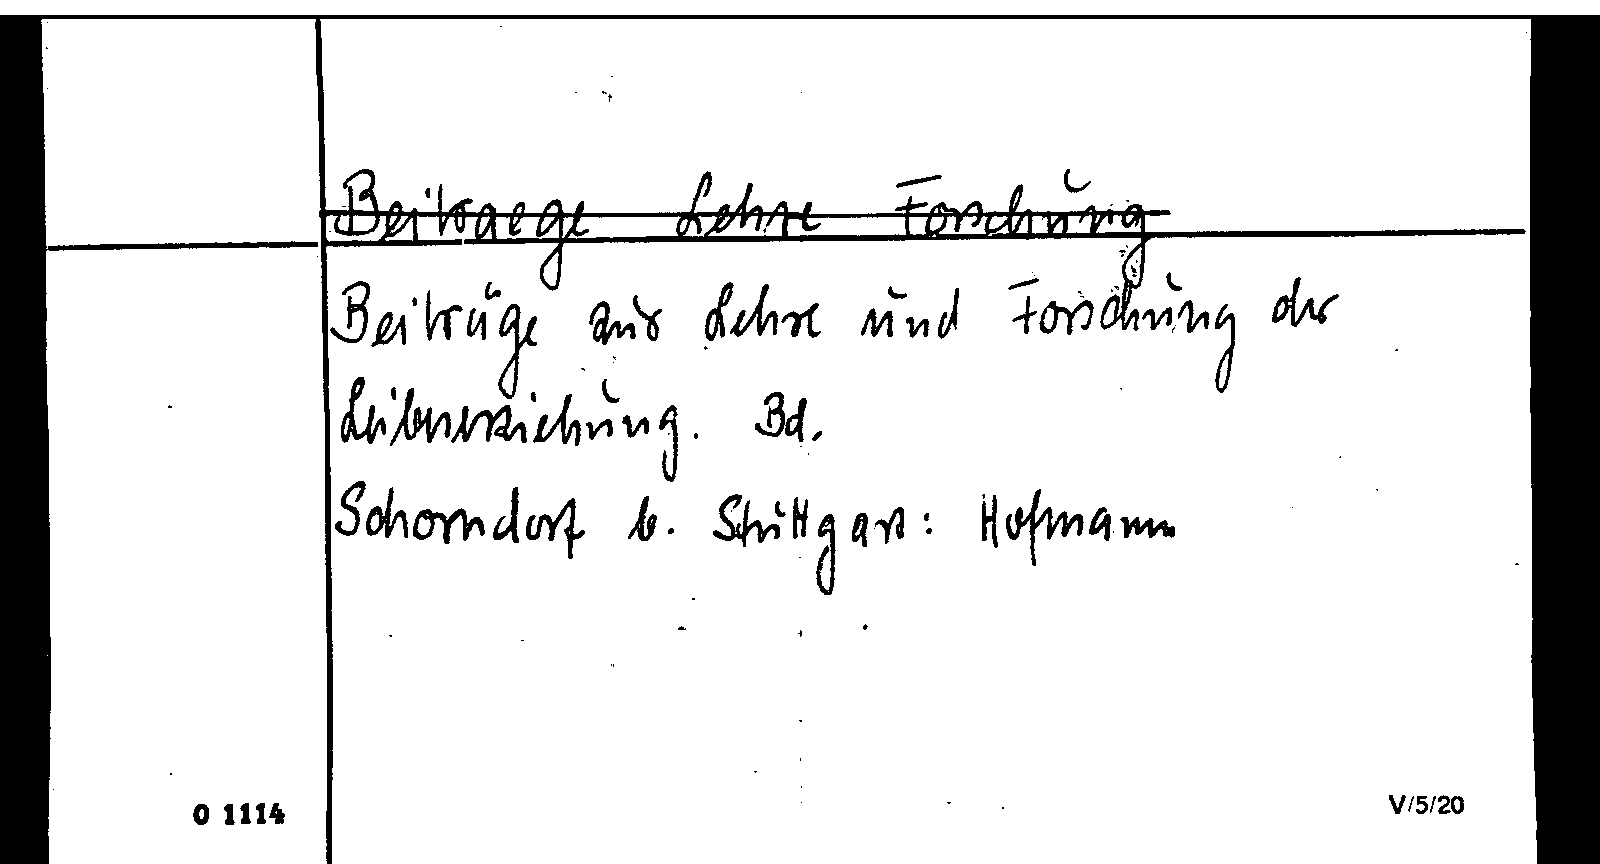 Beitraege Lehre Forschung
Beiträge zur Lehre und Forschung der
Leibeserziehung. Bd.
Schorndorf b. Stuttgart: Hofmann
O 1114
V/5/20